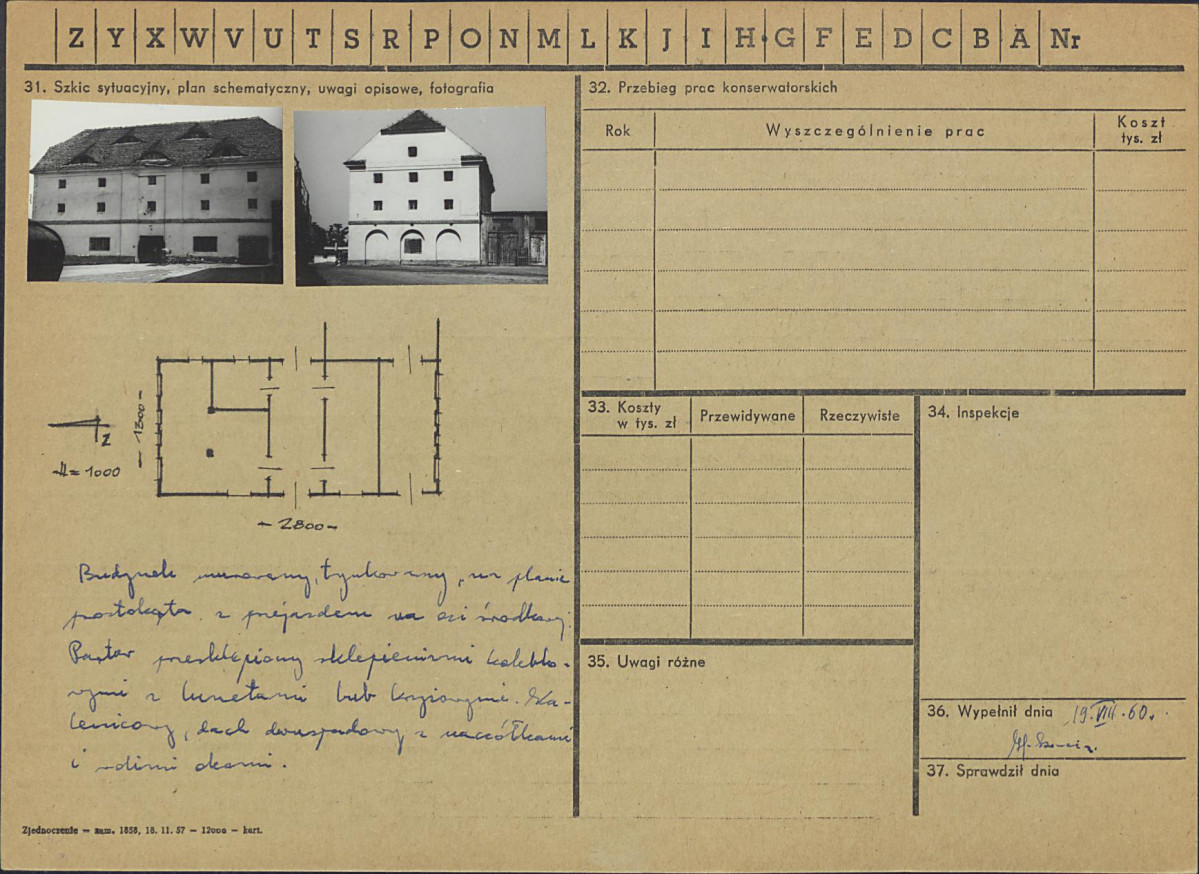 Z Y X W V U T S R P O N M L K J I H G F E D C B A Nr
31. Szkic sytuacyjny, plan schematyczny, uwagi opisowe, fotografia
1300
Z
H = 1000
2800
Budynek murowany, tynkowany, na planie
prostokąta z przejazdem na osi środkowej.
Parter przesklepiony sklepieniami kolebko-
wymi z lunetami lub krzyżowymi. Ka-
lenicowy, dach dwuspadowy z naczółkami
i wolimi okami.
Zjednoczenie — zam. 1858, 18. 11. 57 — 12000 — kart.
32. Przebieg prac konserwatorskich
Rok Wyszczególnienie prac Koszt
tys. zł
33. Koszty
w tys. zł
Przewidywane Rzeczywiste
34. Inspekcje
35. Uwagi różne
36. Wypełnił dnia 19.VIII.60.
37. Sprawdził dnia